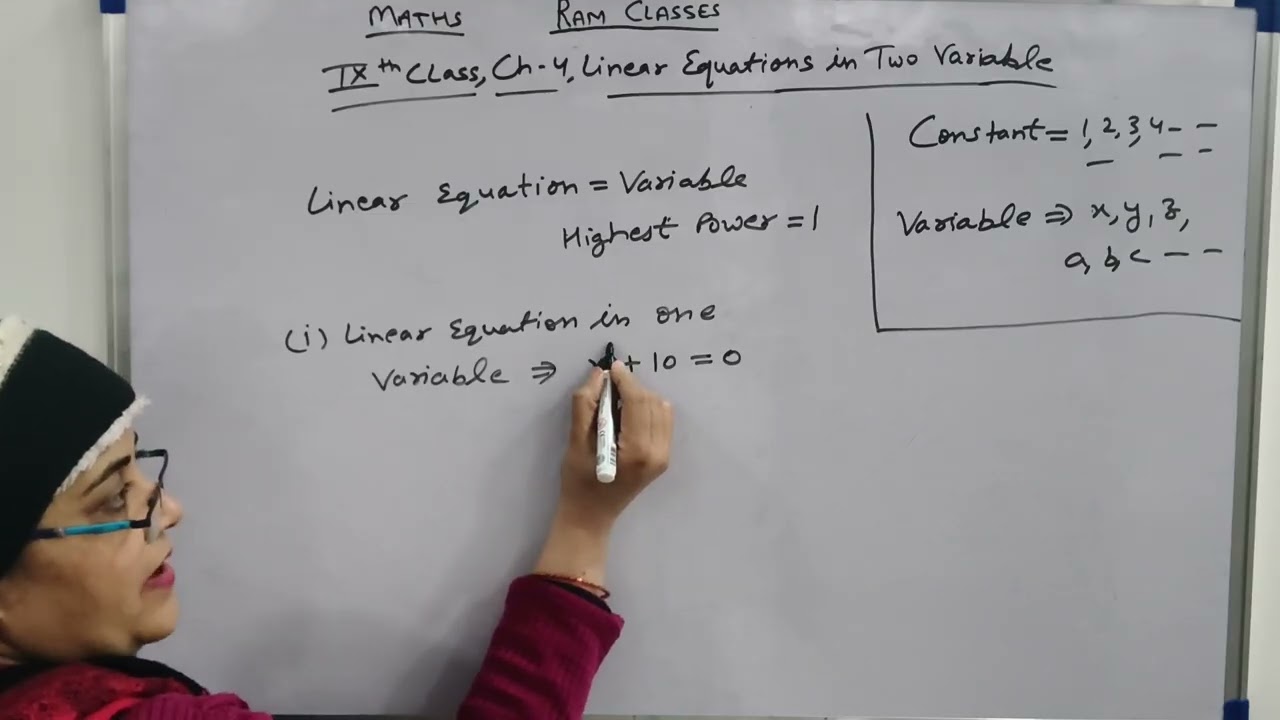 MATHS RAM CLASSES
IXth Class, Ch-4, Linear Equations in Two Variable
Linear Equation = Variable
Highest Power = 1
(i) Linear Equation in one
Variable ⇒ x + 10 = 0
Constant = 1, 2, 3, 4 - -
Variable ⇒ x, y, z,
a, b, c - -